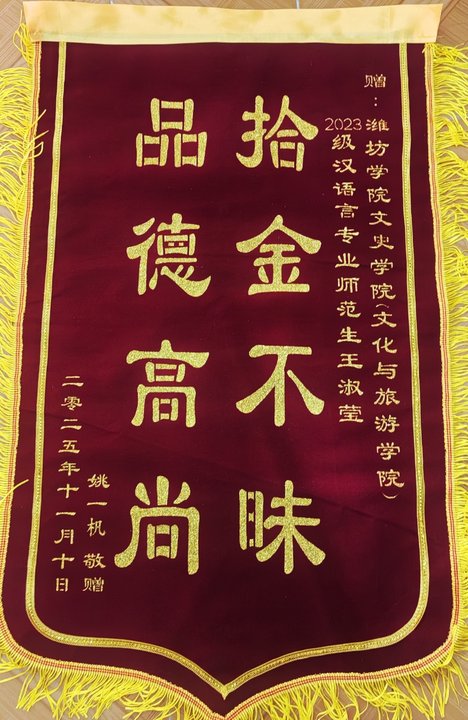 赠：潍坊学院文史学院（文化与旅游学院）
2023级汉语言专业师范生王淑莹
拾金不昧
品德高尚
姚一帆 敬赠
二零二五年十一月十日